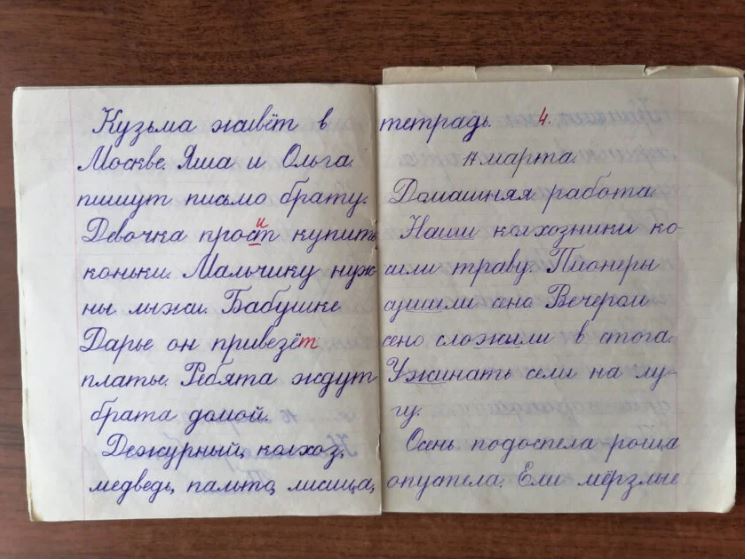 Кузьма живёт в
Москве. Яша и Ольга
пишут письмо брату.
Девочка просит купить
коньки. Мальчику нуж-
ны лыжи. Бабушке
Дарье он привезёт
платье. Ребята ждут
брата домой.
Дежурный, колхоз,
медведь, пальто, лисица,
тетрадь. 4.
4 марта.
Домашняя работа.
Наши колхозники ко-
сили траву. Пионеры
сушили сено. Вечером
сено сложили в стога.
Ужинать сели на лу-
гу.
Осень подоспела – роща
опустела. Ели мёрзлые